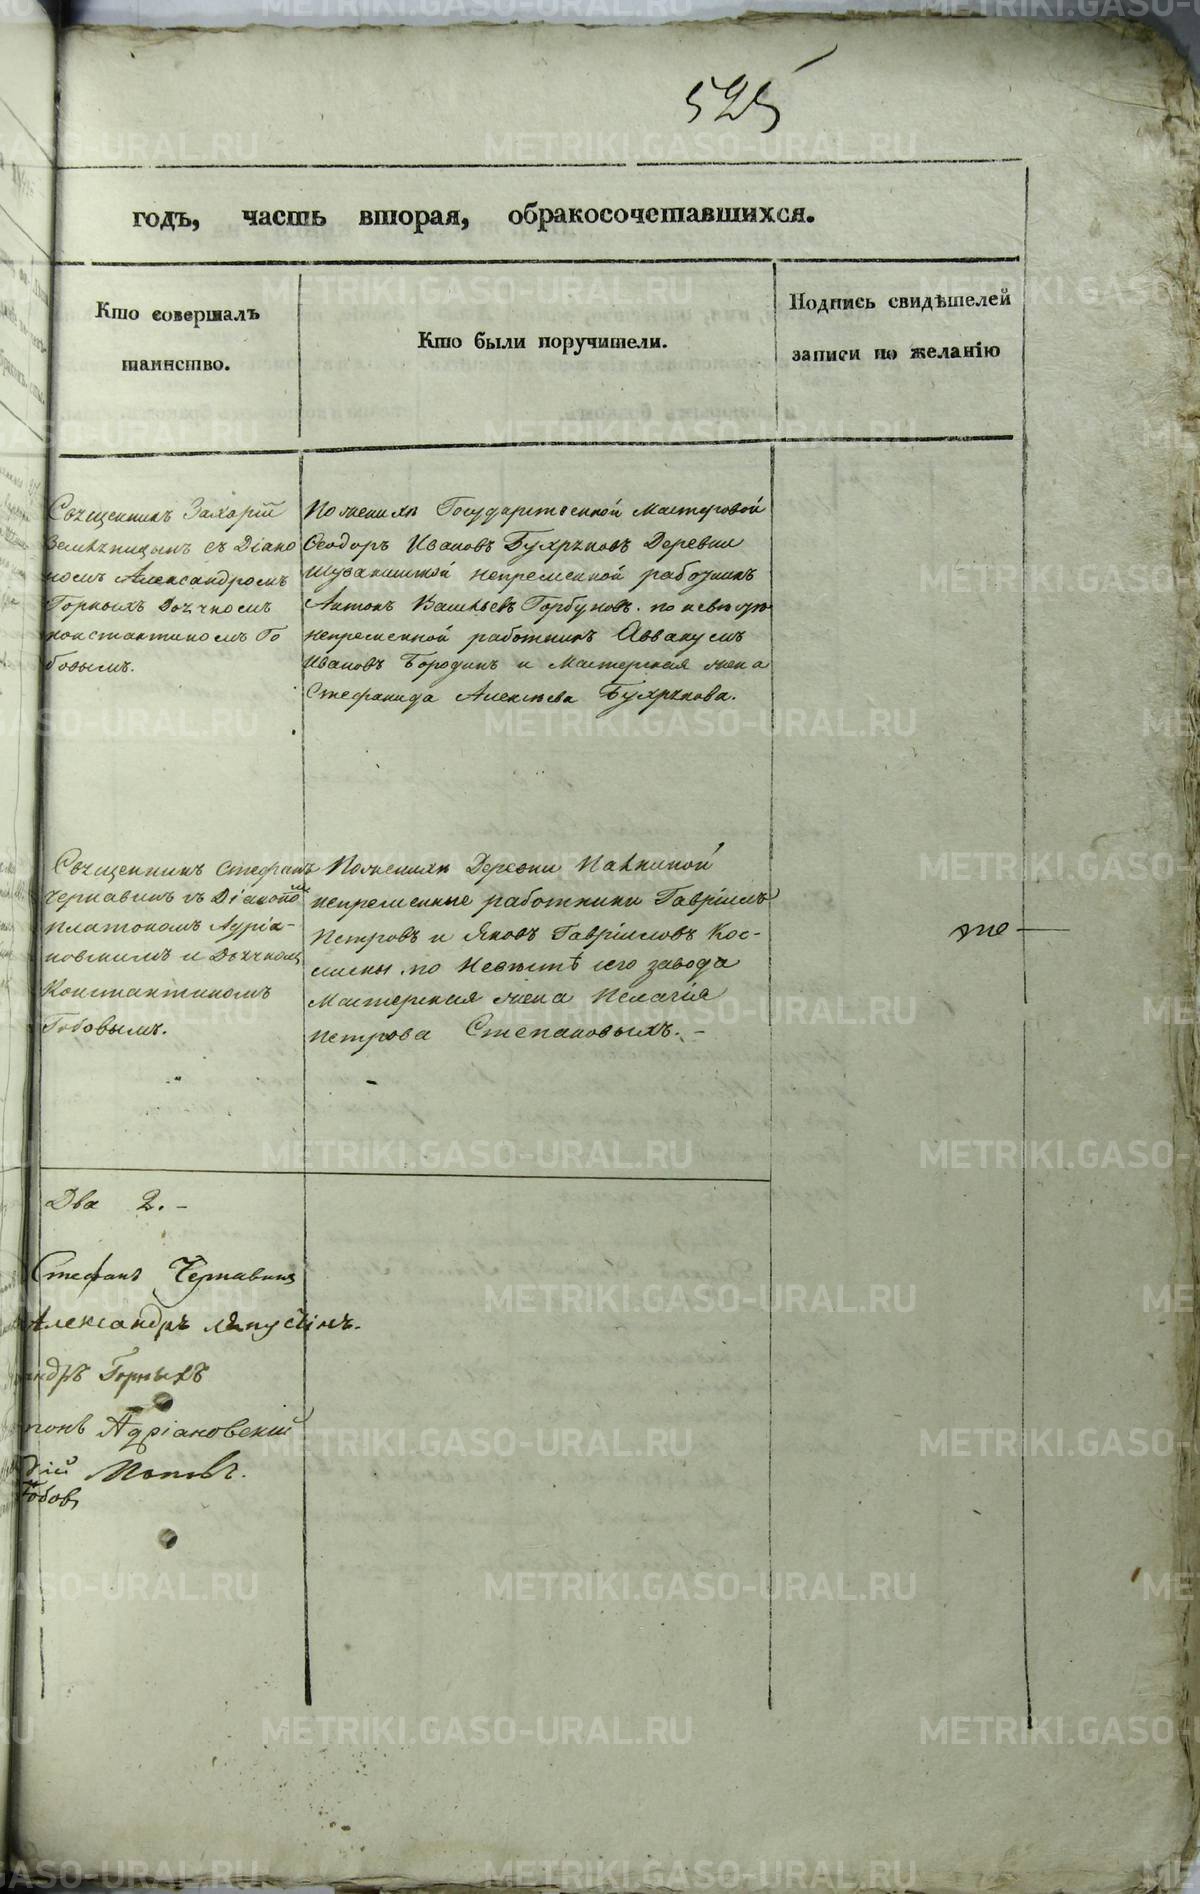 525
годъ, часть вторая, обракосочетавшихся.
Кто совершалъ
таинство.
Кто были поручители.
Подпись свидѣтелей
записи по желанію
Священникъ Захарій
съ Діако
номъ Александромъ
Горныхъ Дьячкомъ
Константиномъ Го
бовымъ.
По женихѣ Государственной Мастеровой
Ѳеодоръ Ивановъ Бухряковъ Деревни
непременной работникъ
Антонъ Васильевъ Горбуновъ. по невѣстѣ
непременной работникъ Аввакумъ
Ивановъ Бородинъ и Мастерская жена
Стефанида Алексѣева Бухрякова.
Священникъ Стефанъ
Чернавинъ съ Діакономъ
Платономъ Адріа-
новскимъ и Дьячкомъ
Константиномъ
Гобовымъ.
По женихѣ Деревни
непременные работники Гавріилъ
Петровъ и Яковъ Гавріиловъ Кос-
. по Невѣстѣ сего завода
Мастерская жена Пелагія
Петрова Степановыхъ. -
Два 2. -
Стефанъ Чернавинъ
Александръ Ляпустинъ.
андръ Горныхъ
тонъ Адріановскій
дій Поповъ.
Гобовъ
METRIKI.GASO-URAL.RU